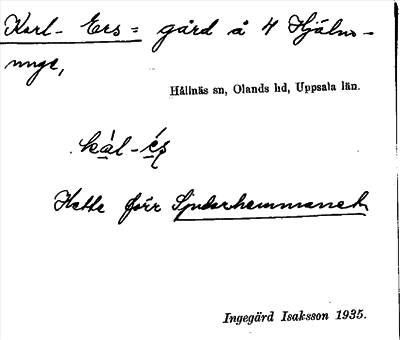 Karl-Ers = gård å 4 Hjälm-
unge,
Hållnäs sn, Olands hd, Uppsala län.
kàl-és
Hette förr Spelarhemmanet
Ingegärd Isaksson 1935.